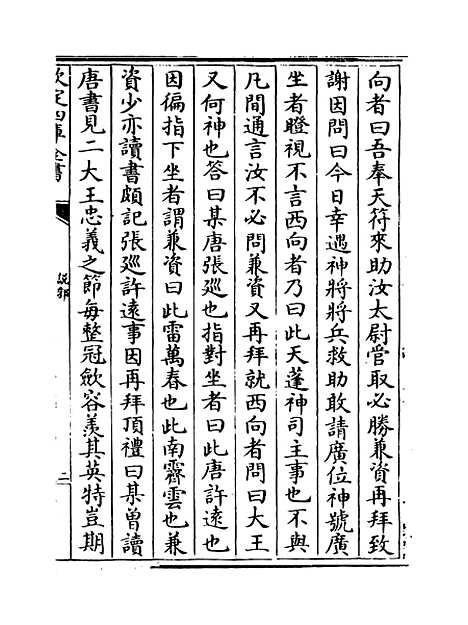 向者曰吾奉天符來助汝太尉營取必勝兼資再拜致
謝因問曰今日幸遇神將將兵救助敢請廣位神號廣
坐者瞪視不言西向者乃曰此天蓬神司主事也不與
凡間通言汝不必問兼資又再拜就西向者問曰大王
又何神也答曰某唐張巡也指對坐者曰此唐許遠也
因徧指下坐者謂兼資曰此雷萬春也此南霽雲也兼
資少亦讀書頗記張巡許遠事因再拜頂禮曰某曽讀
唐書見二大王忠義之節每整冠斂容羨其英特豈期
欽定四庫全書
說郛
二